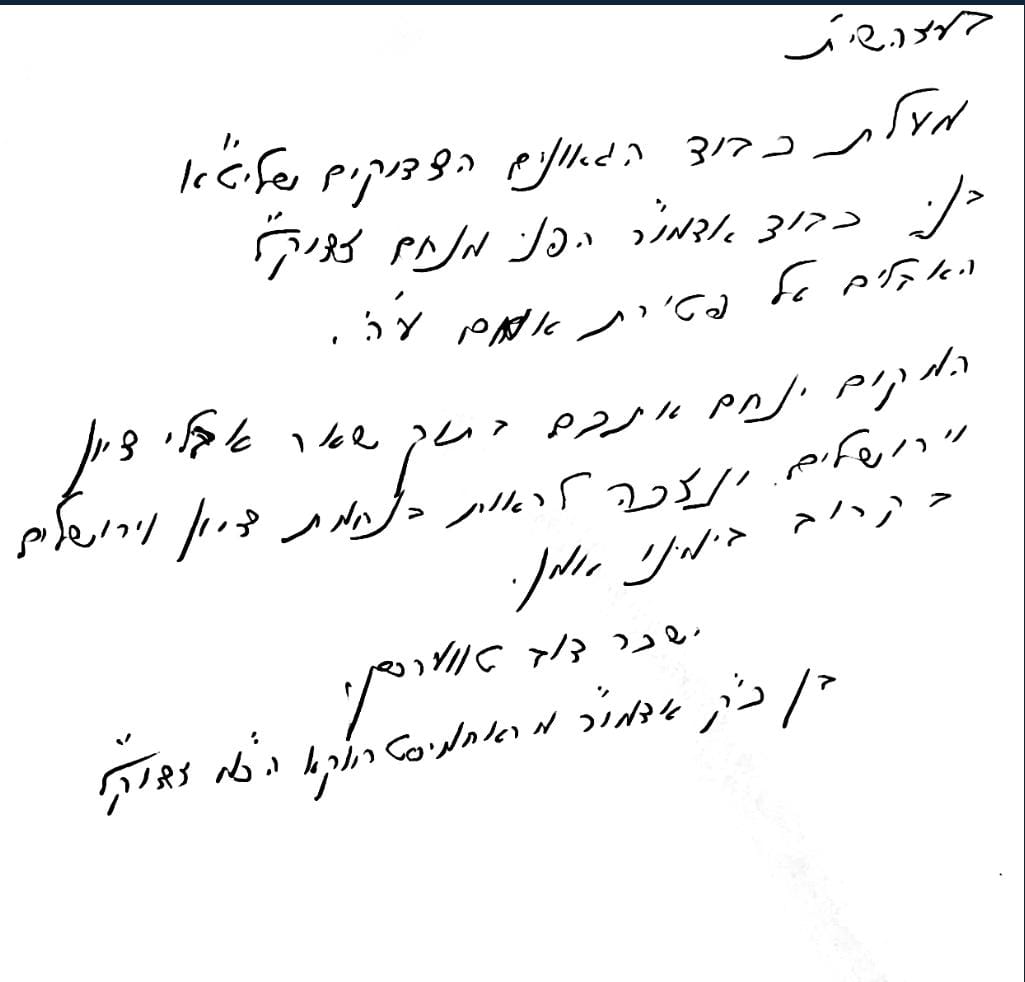 בעזהשי"ת
מעלת כבוד הגאונים הצדיקים שליט"א
בני כבוד אדמו"ר הפני מנחם זצוק"ל
האבלים על פטירת אמם ע"ה.
המקום ינחם אתכם בתוך שאר אבלי ציון
וירושלים ונזכה לראות בנחמת ציון וירושלים
בקרוב בימינו אמן.
ישכר דוב טווערסקי
בן כ"ק אדמו"ר מראחמיסטרווקא הי"מ זצוק"ל